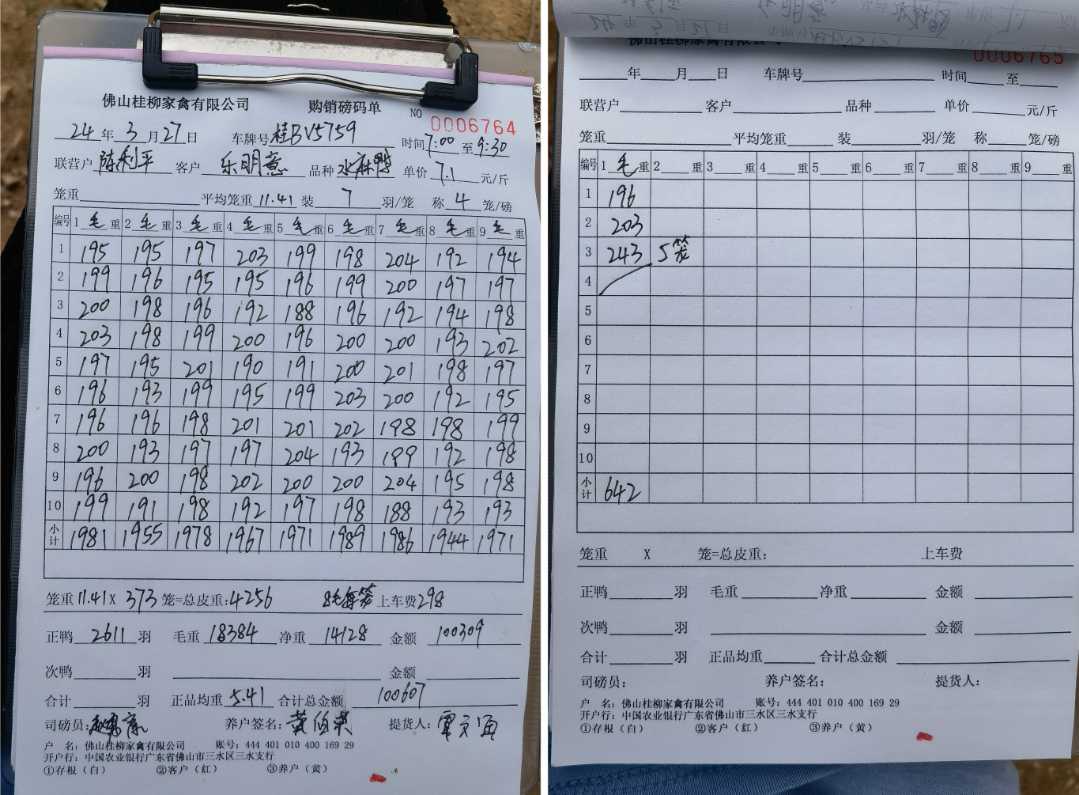 佛山桂柳家禽有限公司 购销磅码单 NO 0006764
24年3月27日 车牌号桂BV5759 时间7:00至9:30
联营户陈利平 客户乐明慧 品种水麻鸭 单价7.1元/斤
笼重 平均笼重11.41装7羽/笼 称4笼/磅
编号 1毛重 2毛重 3毛重 4毛重 5毛重 6毛重 7毛重 8毛重 9毛重
1 195 195 197 203 199 198 204 192 194
2 199 196 195 195 196 199 200 197 197
3 200 198 196 192 188 196 192 194 198
4 203 198 199 200 196 200 200 193 202
5 197 195 201 190 191 200 201 198 197
6 196 193 199 195 199 203 200 192 195
7 196 196 198 201 201 202 198 198 199
8 200 193 197 197 204 193 199 192 198
9 196 200 198 202 200 200 204 195 198
10 199 191 198 192 197 198 188 193 193
小计 1981 1955 1978 1967 1971 1989 1986 1944 1971
笼重11.41X373笼=总皮重:4256 上车费298
正鸭2611羽 毛重18384 净重14128 金额100309
次鸭 羽 金额
合计 羽 正品均重5.41 合计总金额100607
司磅员: 养户签名: 提货人:
户 名:佛山桂柳家禽有限公司 账号:444 401 010 400 169 29
开户行:中国农业银行广东省佛山市三水区三水支行
①存根(白) ②客户(红) ③养户(黄)
佛山桂柳家禽有限公司 0006765
年 月 日 车牌号 时间 至
联营户 客户 品种 单价 元/斤
笼重 平均笼重 装 羽/笼 称 笼/磅
编号 1毛重 2 重 3 重 4 重 5 重 6 重 7 重 8 重 9 重
1 196
2 203
3 243 5笼
4
5
6
7
8
9
10
小计 642
笼重 X 笼=总皮重: 上车费
正鸭 羽 毛重 净重 金额
次鸭 羽 金额
合计 羽 正品均重 合计总金额
司磅员: 养户签名: 提货人:
户 名:佛山桂柳家禽有限公司 账号:444 401 010 400 169 29
开户行:中国农业银行广东省佛山市三水区三水支行
①存根(白) ②客户(红) ③养户(黄)